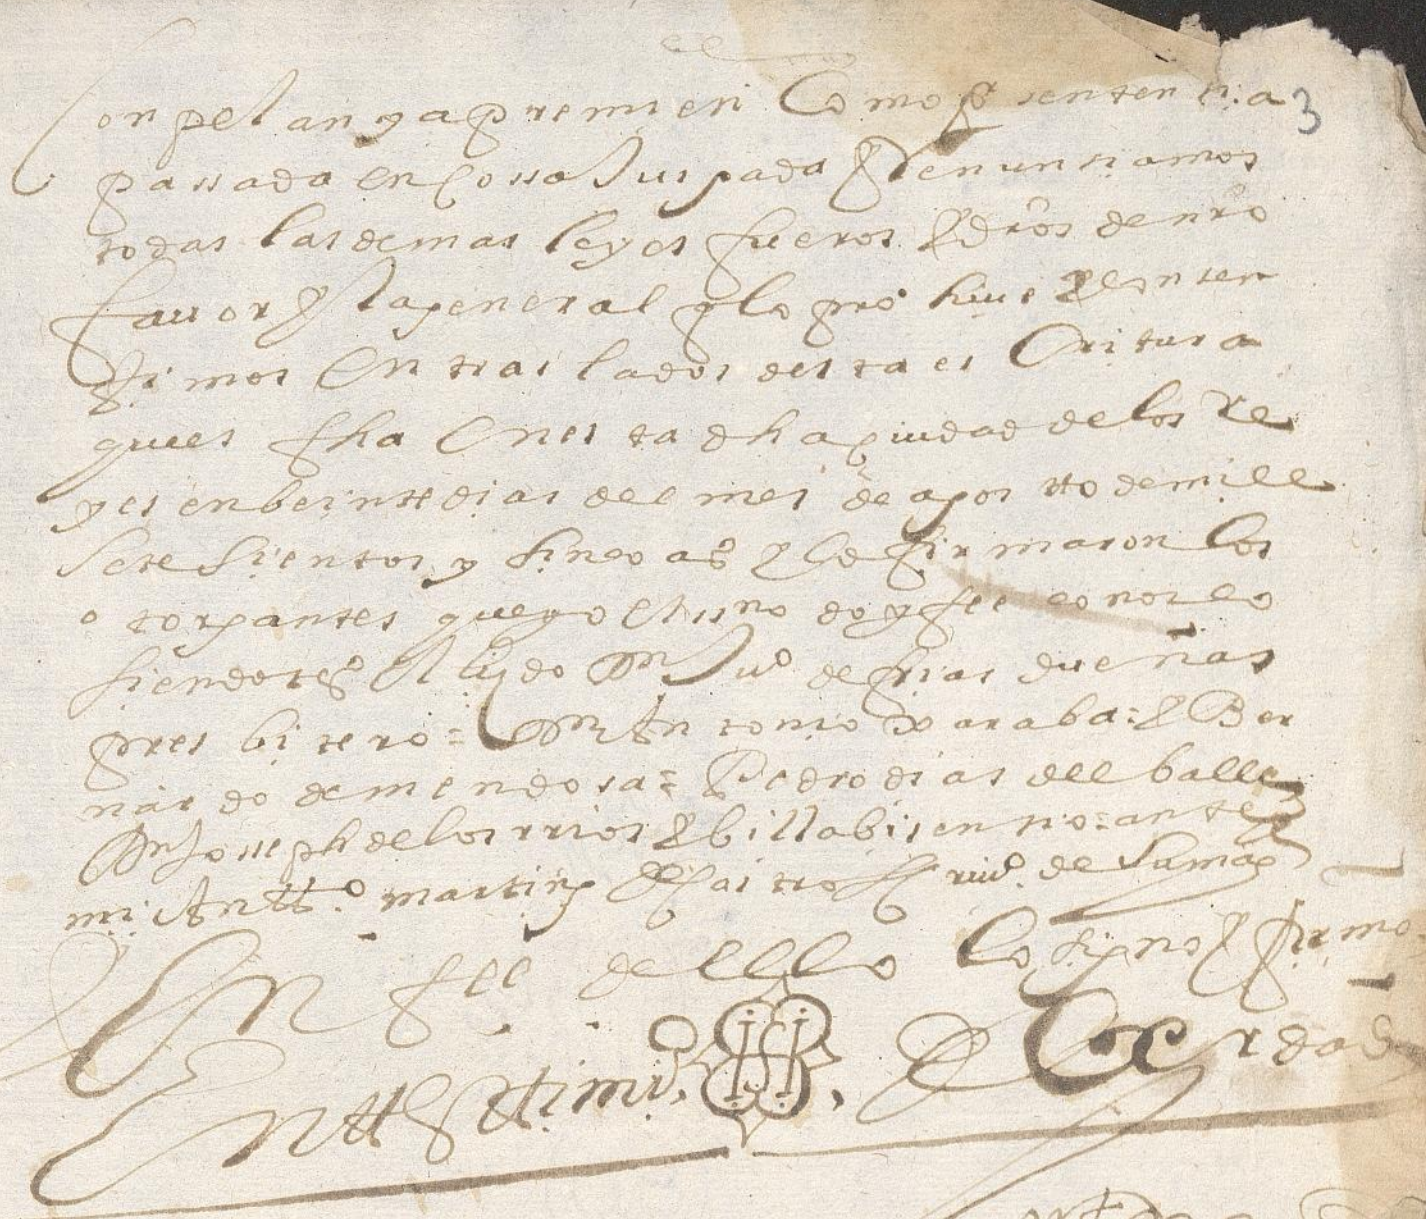 3
conpelan y apremien Como por sentensia
passada en Cossa Jusgada y Renunsiamos
todas las demas leyes fueros y dros de nro
fauor y la general q lo prohiue y consen
timos En traslados desta es Critura
ques fha En esta dha ciudad de los Re
yes en beintte dias del mes de agostto de mill
Setesientos y sinco as y lo firmaron los
otorgantes que yo el ssno doy fee conosco
siendo tgs el lizdo Dn Juo de frias dueñas
presbitero = Dn Antonio xaraba = y Ber
nardo de mendosa = Pedro dias del balle
Dn Josseph de los rrios y billabisensio = ante
mi Antto martinz
En fee de Ello lo signo y firmo
En testimo de Verdad